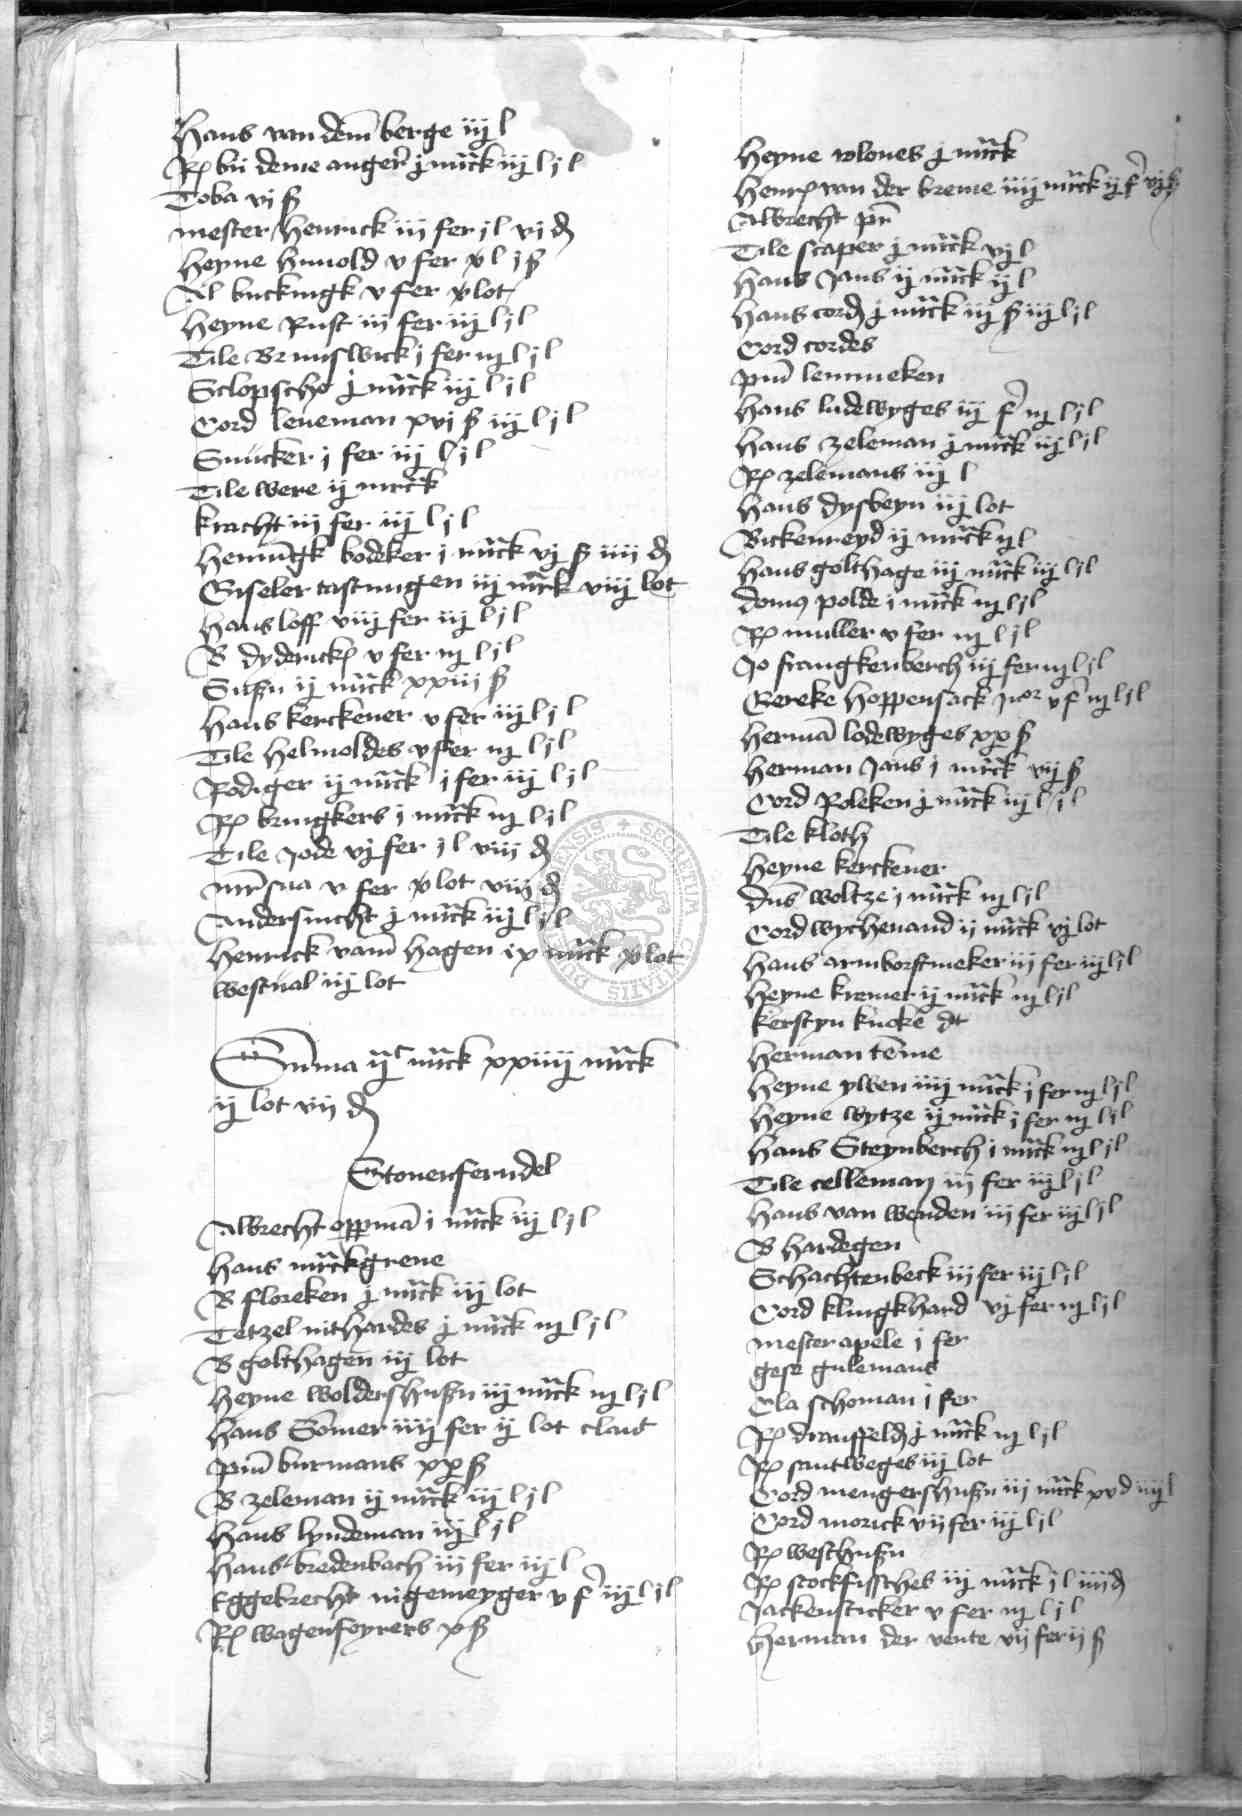 Hans van dem berge iij l
R bii deme anger j marck iij l j l
Toba vi ß
mester Henrick iij fer j l vj d
Heyne hunold v fer x l j ß
Al buckingk v fer x lot
Heyne Rust iij fer iij l j l
Tile Brunswick j fer iij l j l
Sclopscho j marck iij l j l
Cord leneman xvj ß iij l j l
Snucker j fer iij l j l
Tile were ij marck
kracht iij fer iij l j l
Henningk bodeker j marck vj ß iiij d
Giseler tastungen iij marck viij lot
Hans loff viij fer iij l j l
B dyderick v fer iij l j l
ij marck xxiij ß
Hans kerckener v fer iij l j l
Tile Helmoldes v fer iij l j l
Rodiger ij marck j fer iij l j l
R bringkers j marck iij l j l
Tile Jode vj fer j l viij d
v fer x lot viij d
j marck iij l j l
Henrick vam Hagen ix marck x lot
westual iij lot
Summa ij c marck xxiiij marck
ij lot vij d
Stouenferndel
Albrecht oppman j marck iij l j l
Hans marckgrene
B floreken j marck iij lot
Tetzel nithardes j marck iij l j l
B golthagen iij lot
Heyne woldershusen iij marck iij l j l
Hans Somer iiij fer ij lot
burmans xx ß
B zeleman ij marck iij l j l
Hans lyndeman iij l j l
Hans bredenbach iij fer iij l
Eggebrecht nigemeyger v f iij l j l
R wagenfoyrers x ß
Heyne plones j marck
Henr van der breme iiij marck ij f vj ß
Albrecht
Tile scaper j marck vj l
Hans Jans ij marck ij l
Hans cord j marck iij ß iij l j l
Cord cordes
lemmeken
Hans ludewyges iij f iij l j l
Hans zeleman j marck iij l j l
R zelemans iij l
Hans dysteyn iij lot
Bickenreyd ij marck ij l
Hans golthage iij marck iij l j l
domus polde j marck iij l j l
R muller v fer iij l j l
Jo frangkenberch iij fer iij l j l
Gereke Hoppensack v f iij l j l
Herman lodewyges xx ß
Herman Jans j marck vij ß
Cord Poleken j marck iij l j l
Tile kloth
Heyne kerckener
dns woltze j marck iij l j l
Cord wychenand ij marck vj lot
Hans armborstmeker iij fer iij l j l
Heyne kremer ij marck iij l j l
kerstyn knoke dt
Herman teme
Heyne ylwen iiij marck j fer iij l j l
Heyne wytze ij marck j fer iij l j l
Hans Steynberch j marck iij l j l
Tile celleman iij fer iij l j l
Hans van wenden iij fer iij l j l
B hardegen
Schachtenbeck iij fer iij l j l
Cord klingkhard vj fer iij l j l
mester apele j fer
gese gulemans
Cla schoman j fer
R dransfeld j marck iij l j l
R santweges iij lot
Cord mengershusen iij marck xv d iiij l
Cord morick vij fer iij l j l
R westhusen
R stockfissches iij marck j l iiij d
Jackensticker v fer iij l j l
Herman der vente vij fer ij ß